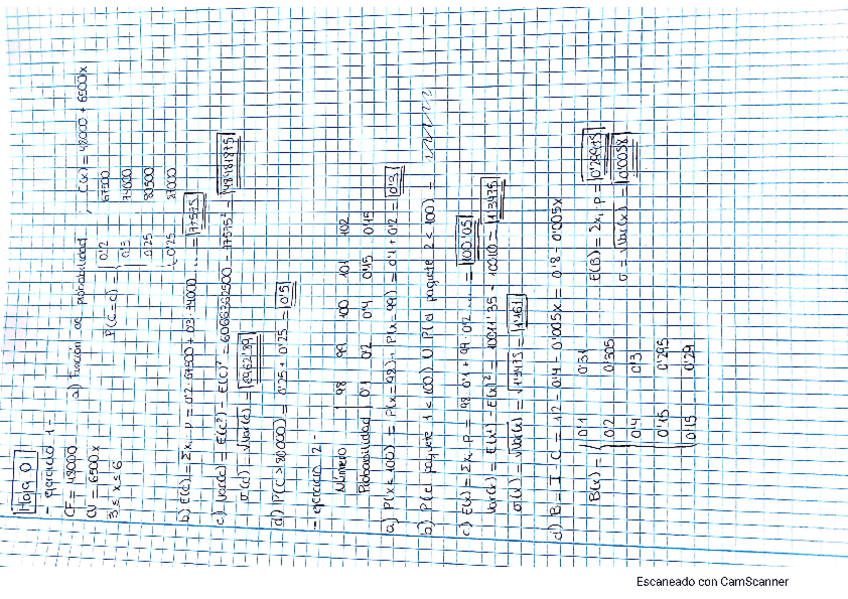 Hoja 0
- ejercicio 1 -
CF = 48000
CV = 6500x
3 ≤ x ≤ 6
a) Función de probabilidad , C(x) = 48000 + 6500x
P(C=c) = { 0'2 67500
0'3 74000
0'25 80500
0'25 87000
b) E(C) = Σxi · P = 0'2 · 67500 + 0'3 · 74000 ... = 77575
c) Var(C) = E(C²) - E(C)² = - 77575² =
σ(C) = √Var(C) =
d) P(C > 80000) = 0'25 + 0'25 = 0'5
- ejercicio 2 -
Número 98 99 100 101 102
Probabilidad 0'1 0'2 0'4 0'15 0'15
a) P(x < 100) = P(x = 98) + P(x = 99) = 0'1 + 0'2 = 0'3
b) P(el paquete 1 < 100) ∪ P(el paquete 2 < 100) =
c) E(x) = Σxi · P = 98 · 0'1 + 99 · 0'2 ... = 100'05
Var(x) = E(x²) - E(x)² = 10011'35 - 10010 = 1'3475
σ(x) = √Var(x) = √1'3475 = 1'161
d) B = I - C = 1'2 - 0'4 - 0'005x = 0'8 - 0'005x
B(x) = { 0'1 0'31
0'2 0'305 E(B) = Σxi · P = 0'29975
0'4 0'3 σ = √Var(x) = 0'0058
0'15 0'295
0'15 0'29
Escaneado con CamScanner